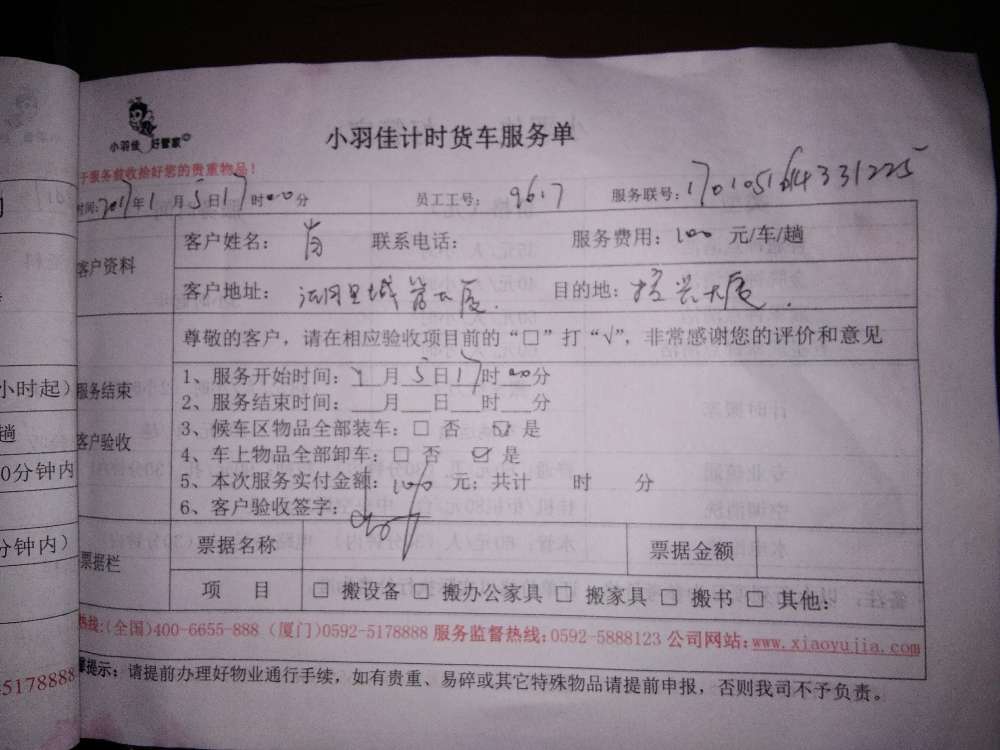 小羽佳 好管家
小羽佳计时货车服务单
于服务前收拾好您的贵重物品！
时间：2017年1月5日17时00分 员工工号：9617 服务联号：
客户资料
客户姓名： 联系电话： 服务费用：100 元/车/趟
客户地址： 大厦 目的地： 大厦
尊敬的客户，请在相应验收项目前的“□”打“√”，非常感谢您的评价和意见
服务结束
客户验收
1、服务开始时间：1月5日17时00分
2、服务结束时间：___月___日___时___分
3、候车区物品全部装车：□ 否 ☑ 是
4、车上物品全部卸车：□ 否 ☑ 是
5、本次服务实付金额：100 元；共计 时 分
6、客户验收签字：
票据栏
票据名称 票据金额
项 目 □ 搬设备 □ 搬办公家具 □ 搬家具 □ 搬书 □ 其他：
热线：(全国)400-6655-888 (厦门)0592-5178888 服务监督热线：0592-5888123 公司网站：www.xiaoyujia.com
提示：请提前办理好物业通行手续，如有贵重、易碎或其它特殊物品请提前申报，否则我司不予负责。
小时起）
趟
0分钟内
分钟内）
5178888